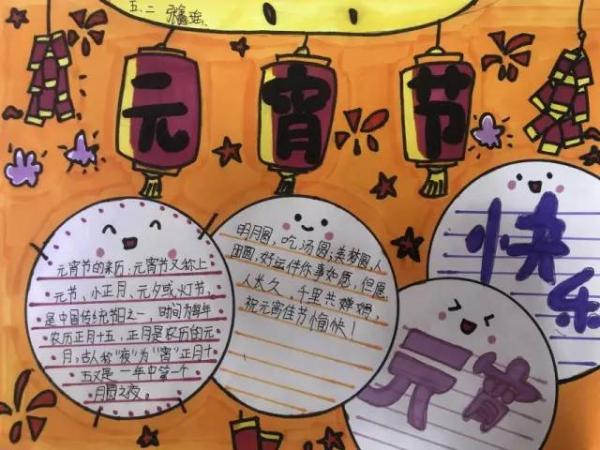 五.二 张
元宵节
元宵节的来历：元宵节又称上
元节、小正月、元夕或灯节，
是中国传统节日之一，时间为每年
农历正月十五，正月是农历的元
月，古人称"夜"为"宵"正月十
五又是一年中第一个
月圆之夜。
明月圆，吃汤圆；美梦圆，人
团圆，好运伴你事如愿，但愿
人长久，千里共婵娟，
祝元宵佳节愉快！
元宵
快乐